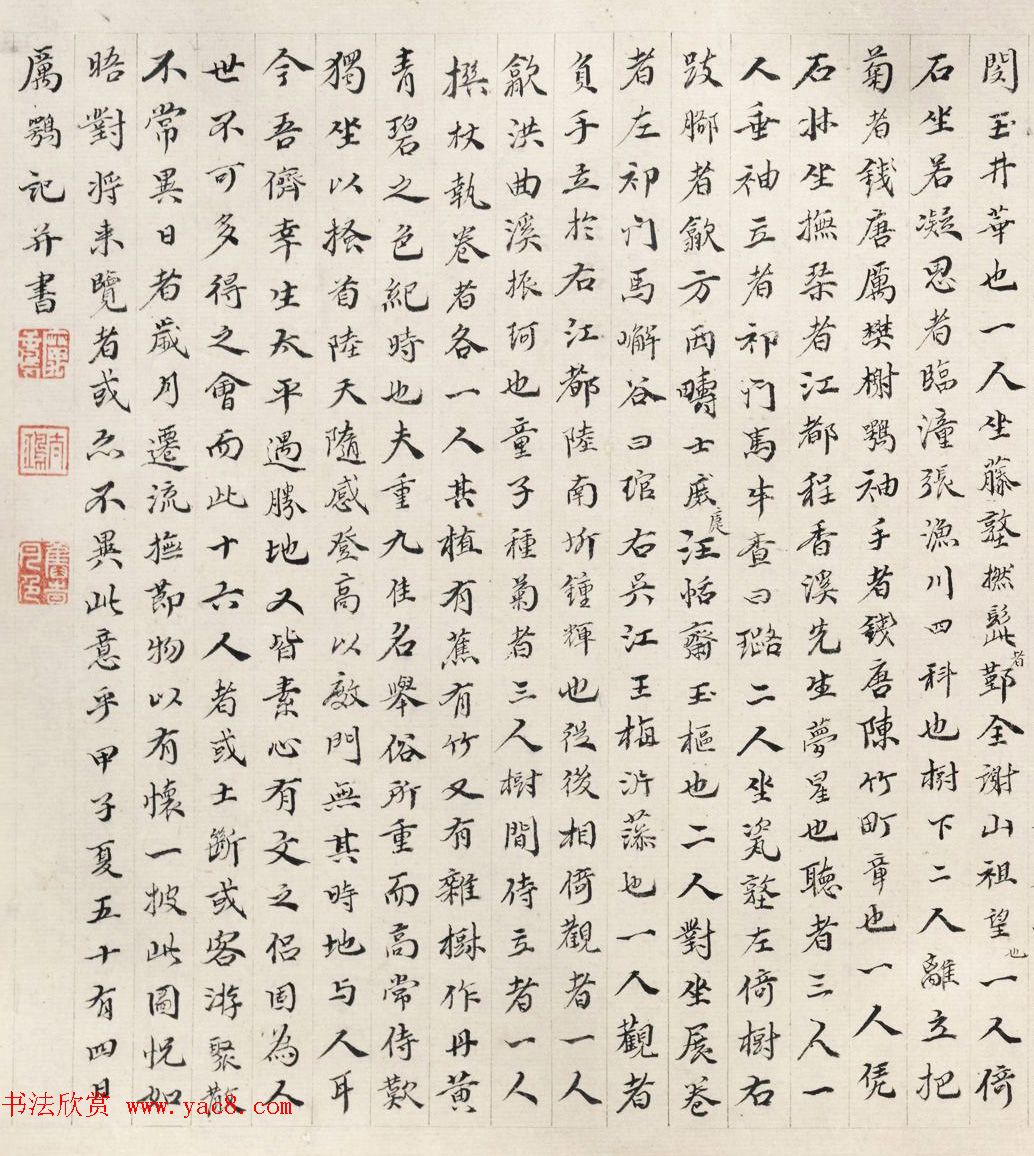 閔玉井華也一人坐藤墪撚髭者鄞全謝山祖望也一人倚
石坐若凝思者臨潼張漁川四科也樹下二人離立把
菊者錢唐厲樊榭鶚袖手者錢唐陳竹町章也一人凭
石牀坐撫琹者江都程香溪先生夢星也聽者三人一
人垂袖立者祁門馬半查曰璐二人坐瓷墪左倚樹右
跂腳者歙方西疇士庶庹汪恬齋玉樞也二人對坐展卷
者左祁門馬嶰谷曰琯右吳江王梅沜藻也一人觀者
負手立於右江都陸南圻鍾輝也從後相倚觀者一人
歙洪曲溪振珂也童子種菊者三人樹間侍立者一人
撰杖執卷者各一人其植有蕉有竹又有雜樹作丹黃
青碧之色紀時也夫重九佳名舉俗所重而高常侍歎
獨坐以搔首陸天隨感登高以敵門無其時地与人耳
今吾儕幸生太平遇勝地又皆素心有文之侶固為人
世不可多得之會而此十六人者或土斷或客游聚散
不常異日者歲月遷流撫節物以有懷一披此圖怳如
晤對將来覽者或亦不異此意乎甲子夏五十有四日
厲鶚記并書
书法欣赏 www.yac8.com